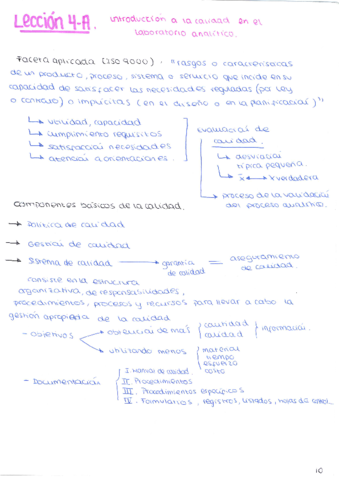 Lección 4-A. Introducción a la calidad en el
laboratorio analítico.
Faceta aplicada (ISO 9000). "rasgos o características
de un producto, proceso, sistema o servicio que incide en su
capacidad de satisfacer las necesidades reguladas (por ley
o contrato) o implícitas (en el diseño o en la planificación)"
↳ utilidad, capacidad
↳ cumplimiento requisitos
↳ satisfacción necesidades
↳ atención a orientaciones.
evaluación de
calidad.
↳ desviación
típica pequeña.
↳ x̄ ↔ x verdadera
↳ proceso de la validación
del proceso analítico.
Componentes básicos de la calidad.
→ Política de calidad
→ Gestión de calidad
→ Sistema de calidad → garantía de calidad = aseguramiento de calidad.
consiste en la estructura
organizativa, de responsabilidades,
procedimientos, procesos y recursos para llevar a cabo la
gestión apropiada de la calidad
- objetivos
obtención de más { cantidad calidad } información.
utilizando menos { material tiempo esfuerzo costo
- Documentación
I. Manual de calidad
II. Procedimientos
III. Procedimientos específicos
IV. Formularios, registros, listados, hojas de
10